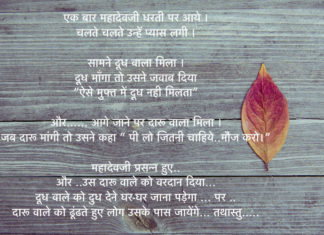 एक बार महादेवजी धरती पर आये ।
चलते चलते उन्हें प्यास लगी ।
सामने दूध बाला मिला ।
दूध मांगा तो उसने जवाब दिया
“ऐसे मुफ्त में दूध नही मिलता”
और...... आगे जाने पर दारू वाला मिला ।
जब दारू मांगी तो उसने कहा “ पी लो जितनी चाहिये..मौज करो।”
महादेवजी प्रसन्न हुए..
और ..उस दारू वाले को वरदान दिया...
दूध वाले को दुध देने घर-घर जाना पड़ेगा ... पर ..
दारू वाले को ढूंढते हुए लोग उसके पास जायेंगे... तथास्तु.....